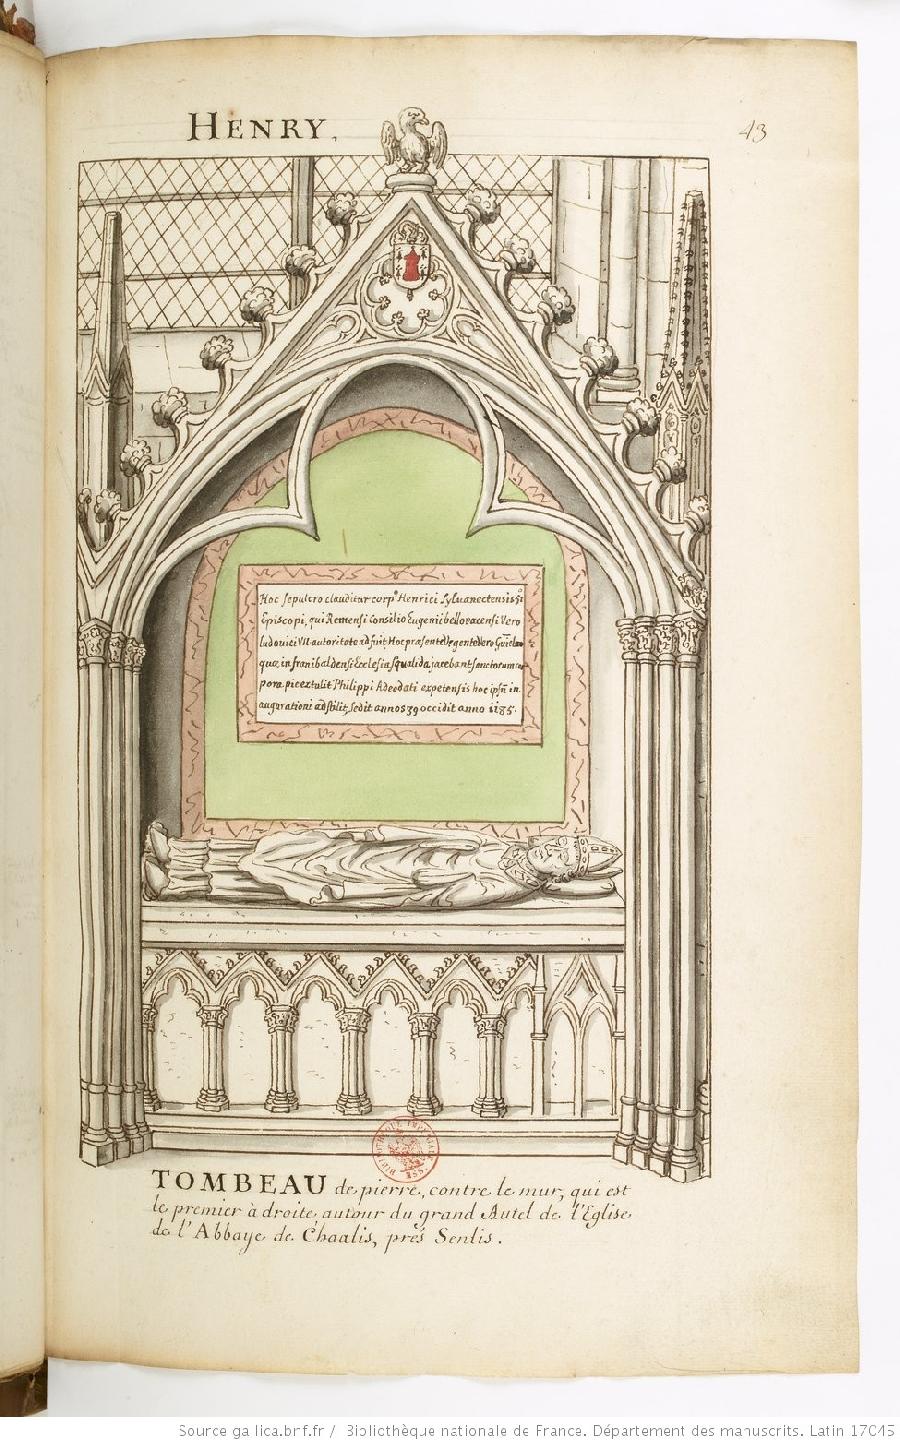 HENRY.
43
Hoc sepulcro clauditur corpº Henrici Sylvanectensis
Episcopi, qui Remensi Consilio Eugenii bellovacensi Vero
ludovici VII autoritate adfuit, Hoc præsente degente Vero
quæ in franibaldensi Ecclesia squalida jacebant
pora pie extulit Philippi Adeodati expetensis hoc ipsū in
augurationi adstitit, sedit annos 39 occidit anno 1185.
BIBLIOTHEQUE IMPERIALE MSS.
TOMBEAU de pierre, contre le mur, qui est
le premier à droite, autour du grand Autel de l'Eglise
de l'Abbaye de Chaalis, prés Senlis.
Source gallica.bnf.fr / Bibliothèque nationale de France. Département des manuscrits. Latin 17045